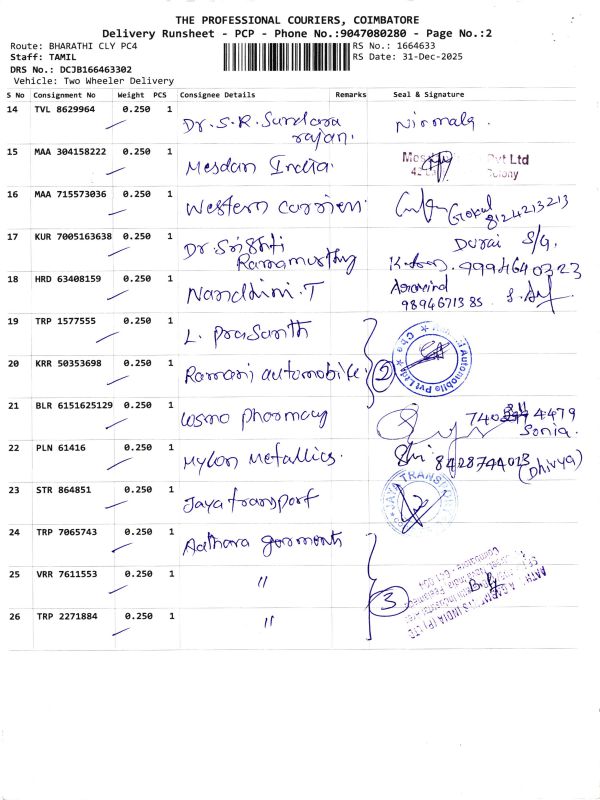 THE PROFESSIONAL COURIERS, COIMBATORE
Delivery Runsheet - PCP - Phone No.:9047080280 - Page No.:2
Route: BHARATHI CLY PC4 RS No.: 1664633
Staff: TAMIL RS Date: 31-Dec-2025
DRS No.: DCJB166463302
Vehicle: Two Wheeler Delivery
S No Consignment No Weight PCS Consignee Details Remarks Seal & Signature
14 TVL 8629964 0.250 1 Dr. S.R. Sundara rajan. Nirmala.
15 MAA 304158222 0.250 1 Mesdan India. Pvt Ltd
16 MAA 715573036 0.250 1 Western carrier. Gokul 8124213213
17 KUR 7005163638 0.250 1 Dr. Srishti Ramamurthy Durai S/G. 9994640323
18 HRD 63408159 0.250 1 Nanddhini.T Aravind 9894671385
19 TRP 1577555 0.250 1 L. Prasanth
20 KRR 50353698 0.250 1 Ramani automobike. 2 Automobile Pvt Ltd
21 BLR 6151625129 0.250 1 Cosmo pharmacy 4479 Sonia.
22 PLN 61416 0.250 1 Mylon Metallics. 8428744013 (Dhivya)
23 STR 864851 0.250 1 Jaya transport JAYA TRANS
24 TRP 7065743 0.250 1 Aathava garments
25 VRR 7611553 0.250 1 " 3
26 TRP 2271884 0.250 1 "